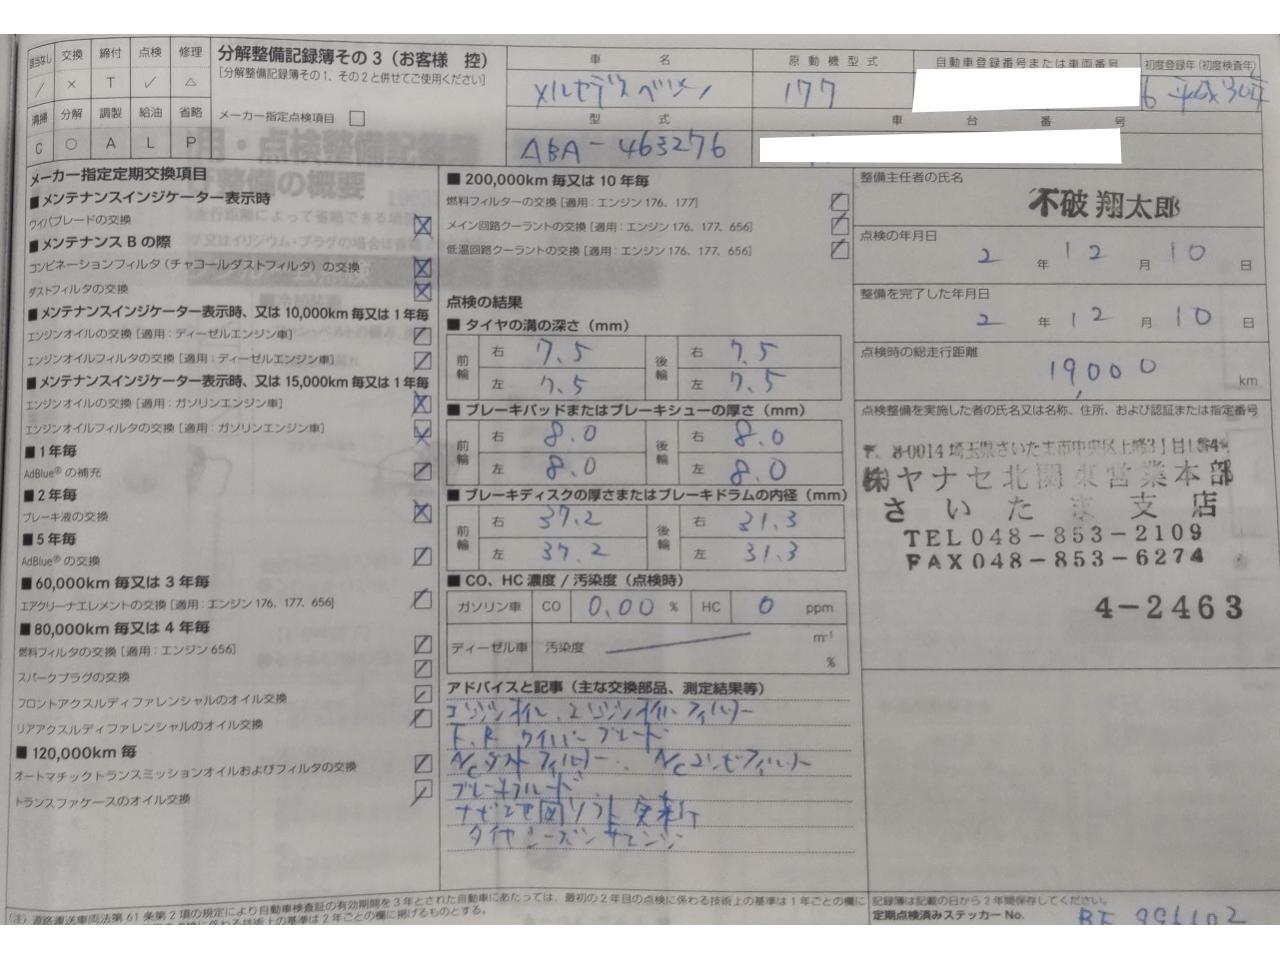 該当なし 交換 締付 点検 修理
/ × T ✓ △
清掃 分解 調製 給油 省略
C ○ A L P
分解整備記録簿その3（お客様 控）
[分解整備記録簿その1、その2と併せてご使用ください]
メーカー指定点検項目 □
車 名
メルセデスベンツ
原動機型式
177
自動車登録番号または車両番号
初度登録年（初度検査年）
平成30年
型 式
ABA-463276
車 台 番 号
メーカー指定定期交換項目
■メンテナンスインジケーター表示時
ワイパブレードの交換
■メンテナンス B の際
コンビネーションフィルタ（チャコールダストフィルタ）の交換
ダストフィルタの交換
■メンテナンスインジケーター表示時、又は 10,000km 毎又は 1 年毎
エンジンオイルの交換［適用：ディーゼルエンジン車］
エンジンオイルフィルタの交換［適用：ディーゼルエンジン車］
■メンテナンスインジケーター表示時、又は 15,000km 毎又は 1 年毎
エンジンオイルの交換［適用：ガソリンエンジン車］
エンジンオイルフィルタの交換［適用：ガソリンエンジン車］
■1年毎
AdBlue®の補充
■2年毎
ブレーキ液の交換
■5年毎
AdBlue®の交換
■60,000km 毎又は 3 年毎
エアクリーナエレメントの交換［適用：エンジン176、177、656］
■80,000km 毎又は 4 年毎
燃料フィルタの交換［適用：エンジン656］
スパークプラグの交換
フロントアクスルディファレンシャルのオイル交換
リアアクスルディファレンシャルのオイル交換
■120,000km 毎
オートマチックトランスミッションオイルおよびフィルタの交換
トランスファケースのオイル交換
■200,000km 毎又は 10 年毎
燃料フィルターの交換［適用：エンジン176、177］
メイン回路クーラントの交換［適用：エンジン176、177、656］
低温回路クーラントの交換［適用：エンジン176、177、656］
点検の結果
■タイヤの溝の深さ（mm）
前輪 右 7.5 後輪 右 7.5
左 7.5 左 7.5
■ブレーキパッドまたはブレーキシューの厚さ（mm）
前輪 右 8.0 後輪 右 8.0
左 8.0 左 8.0
■ブレーキディスクの厚さまたはブレーキドラムの内径（mm）
前輪 右 37.2 後輪 右 31.3
左 37.2 左 31.3
■CO、HC 濃度 / 汚染度（点検時）
ガソリン車 CO 0.00 % HC 0 ppm
ディーゼル車 汚染度 m⁻¹
%
アドバイスと記事（主な交換部品、測定結果等）
エンジンオイル、エンジンオイルフィルター
F、R ワイパーブレード
A/Cダストフィルター、 A/Cコンビフィルター
ブレーキフルード
ナビ地図ソフト更新
タイヤシーズンチェンジ
整備主任者の氏名
不破 翔太郎
点検の年月日
2 年 12 月 10 日
整備を完了した年月日
2 年 12 月 10 日
点検時の総走行距離
19,000 km
点検整備を実施した者の氏名又は名称、住所、および認証または指定番号
埼玉県さいたま市中央区上峰3丁目1番4号
㈱ヤナセ北関東営業本部
さいたま支店
TEL 048-853-2109
FAX 048-853-6274
4-2463
（注）道路運送車両法第 61 条第 2 項の規定により自動車検査証の有効期間を 3 年とされた自動車にあたっては、最初の 2 年目の点検に係わる技術上の基準は 1 年ごとの欄に
係わる技術上の基準は 2 年ごとの欄に掲げるものとする。
記録簿は記載の日から 2 年間保存してください。
定期点検済みステッカー No.